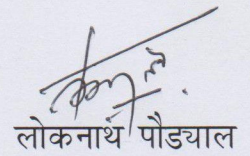 लोकनाथ पौड्याल